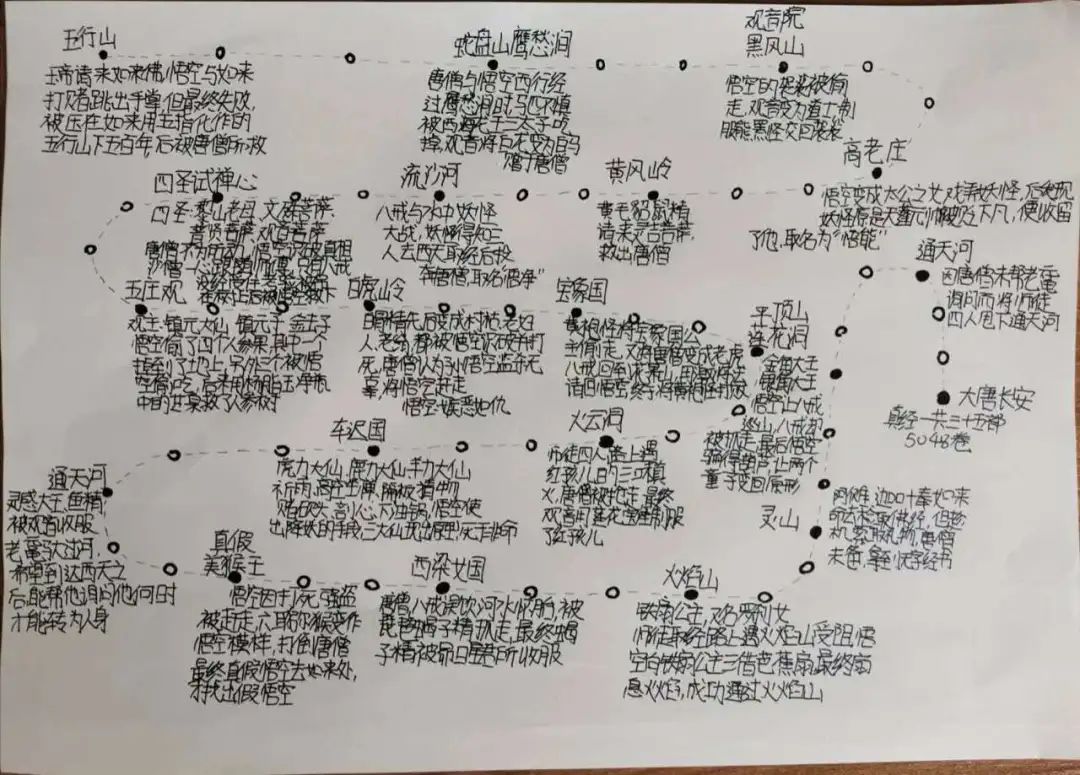 五行山
玉帝请来如来佛,悟空与如来
打赌,跳出手掌,但最终失败,
被压在如来用五指化作的
五行山下五百年后被唐僧所救
蛇盘山鹰愁涧
唐僧与悟空西行经
过鹰愁涧时马匹不慎
被西海龙王三太子吃
掉,观音将白龙变为白马
赠于唐僧
观音院
黑风山
悟空的袈裟被偷
走,观音变为道士制
服熊黑怪交回袈裟
高老庄
悟空变成太公之女戏弄妖怪,后发现
妖怪原是天蓬元帅被贬下凡,便收留
了他,取名为“悟能”
黄风岭
黄毛貂鼠精
请来灵吉菩萨,
救出唐僧
流沙河
八戒与水中妖怪
大战,妖怪得知三
人去西天取经后投
奔唐僧,取名“悟净”
四圣试禅心
四圣:黎山老母,文殊菩萨,
普贤菩萨,观音菩萨
唐僧不为所动,悟空识破真相
沙僧一心跟随师傅,只有八戒
没经受住考验,被
在树上后被悟空救下
五庄观
观主:镇元大仙 镇元子 金击子
悟空偷了四个人参果,其中一个
掉到了地上,另外三个被悟
空偷吃,后来用羊脂玉净瓶
中的甘泉救了人参树
白虎岭
白骨精先后变成村姑,老妇
人,老翁,都被悟空识破并打
死,唐僧认为悟空滥杀无
辜,将悟空赶走
悟空:嫉恶如仇
宝象国
黄袍怪将宝象国公
主偷走,又将唐僧变成老虎
八戒回到花果山,用激将法
请回悟空,终于将黄袍怪打败
平顶山
莲花洞
金角大王
银角大王
悟空让八戒
巡山,八戒却
被抓走,最后悟空
骗得葫芦,让两个
童子变回原形
火云洞
师徒四人路上遇
红孩儿口吐三昧真
火,唐僧被抱走,最终
观音用莲花宝座制服
了红孩儿
车迟国
虎力大仙,鹿力大仙,羊力大仙
祈雨,高空坐禅,隔板猜物
赌砍头,剖心,下油锅,悟空使
出降妖的手段,三大仙现出原形,死于非命
通天河
灵感大王,鱼精
被观音收服
老鼋驮过河,
希望到达西天之
后,能帮他询问他何时
才能转为人身
真假
美猴王
悟空因打死强盗
被赶走,六耳猕猴变作
悟空模样,打倒唐僧
最终真假悟空去如来处,
才找出假悟空
西梁女国
唐僧,八戒误饮河水怀胎,被
琵琶蝎子精抓走,最终蝎
子精被昴日星君所收服
火焰山
铁扇公主,又名罗刹女
师徒取经路上遇火焰山受阻,悟
空向铁扇公主三借芭蕉扇,最终扇
息火焰,成功通过火焰山
灵山
阿傩,迦叶奉如来
命去捡取佛经,但趁
机索取礼物,唐僧
未备,拿到无字经书
通天河
因唐僧未帮老鼋
询问而将师徒
四人甩下通天河
大唐长安
真经一共三十五部
5048卷